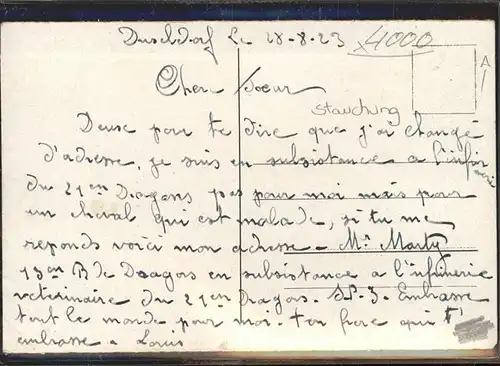 Dusseldorf Le 28-8-23
4000
A
Cher Soeur
Stauchung
Deux pour te dire que j'ai changé
d'adresse, je suis en subsistance a l'infirmerie
du 21 em Dragons pas pour moi mais pour
un cheval qui est malade, si tu me
reponds voici mon adresse - Mr Marty
19 em R de Dragons en subsistance a l'infirmerie
veterinaire du 21 em Dragons. S.P. 3. Embrasse
tout le monde pour moi. ton frere qui t'
embrasse - Louis